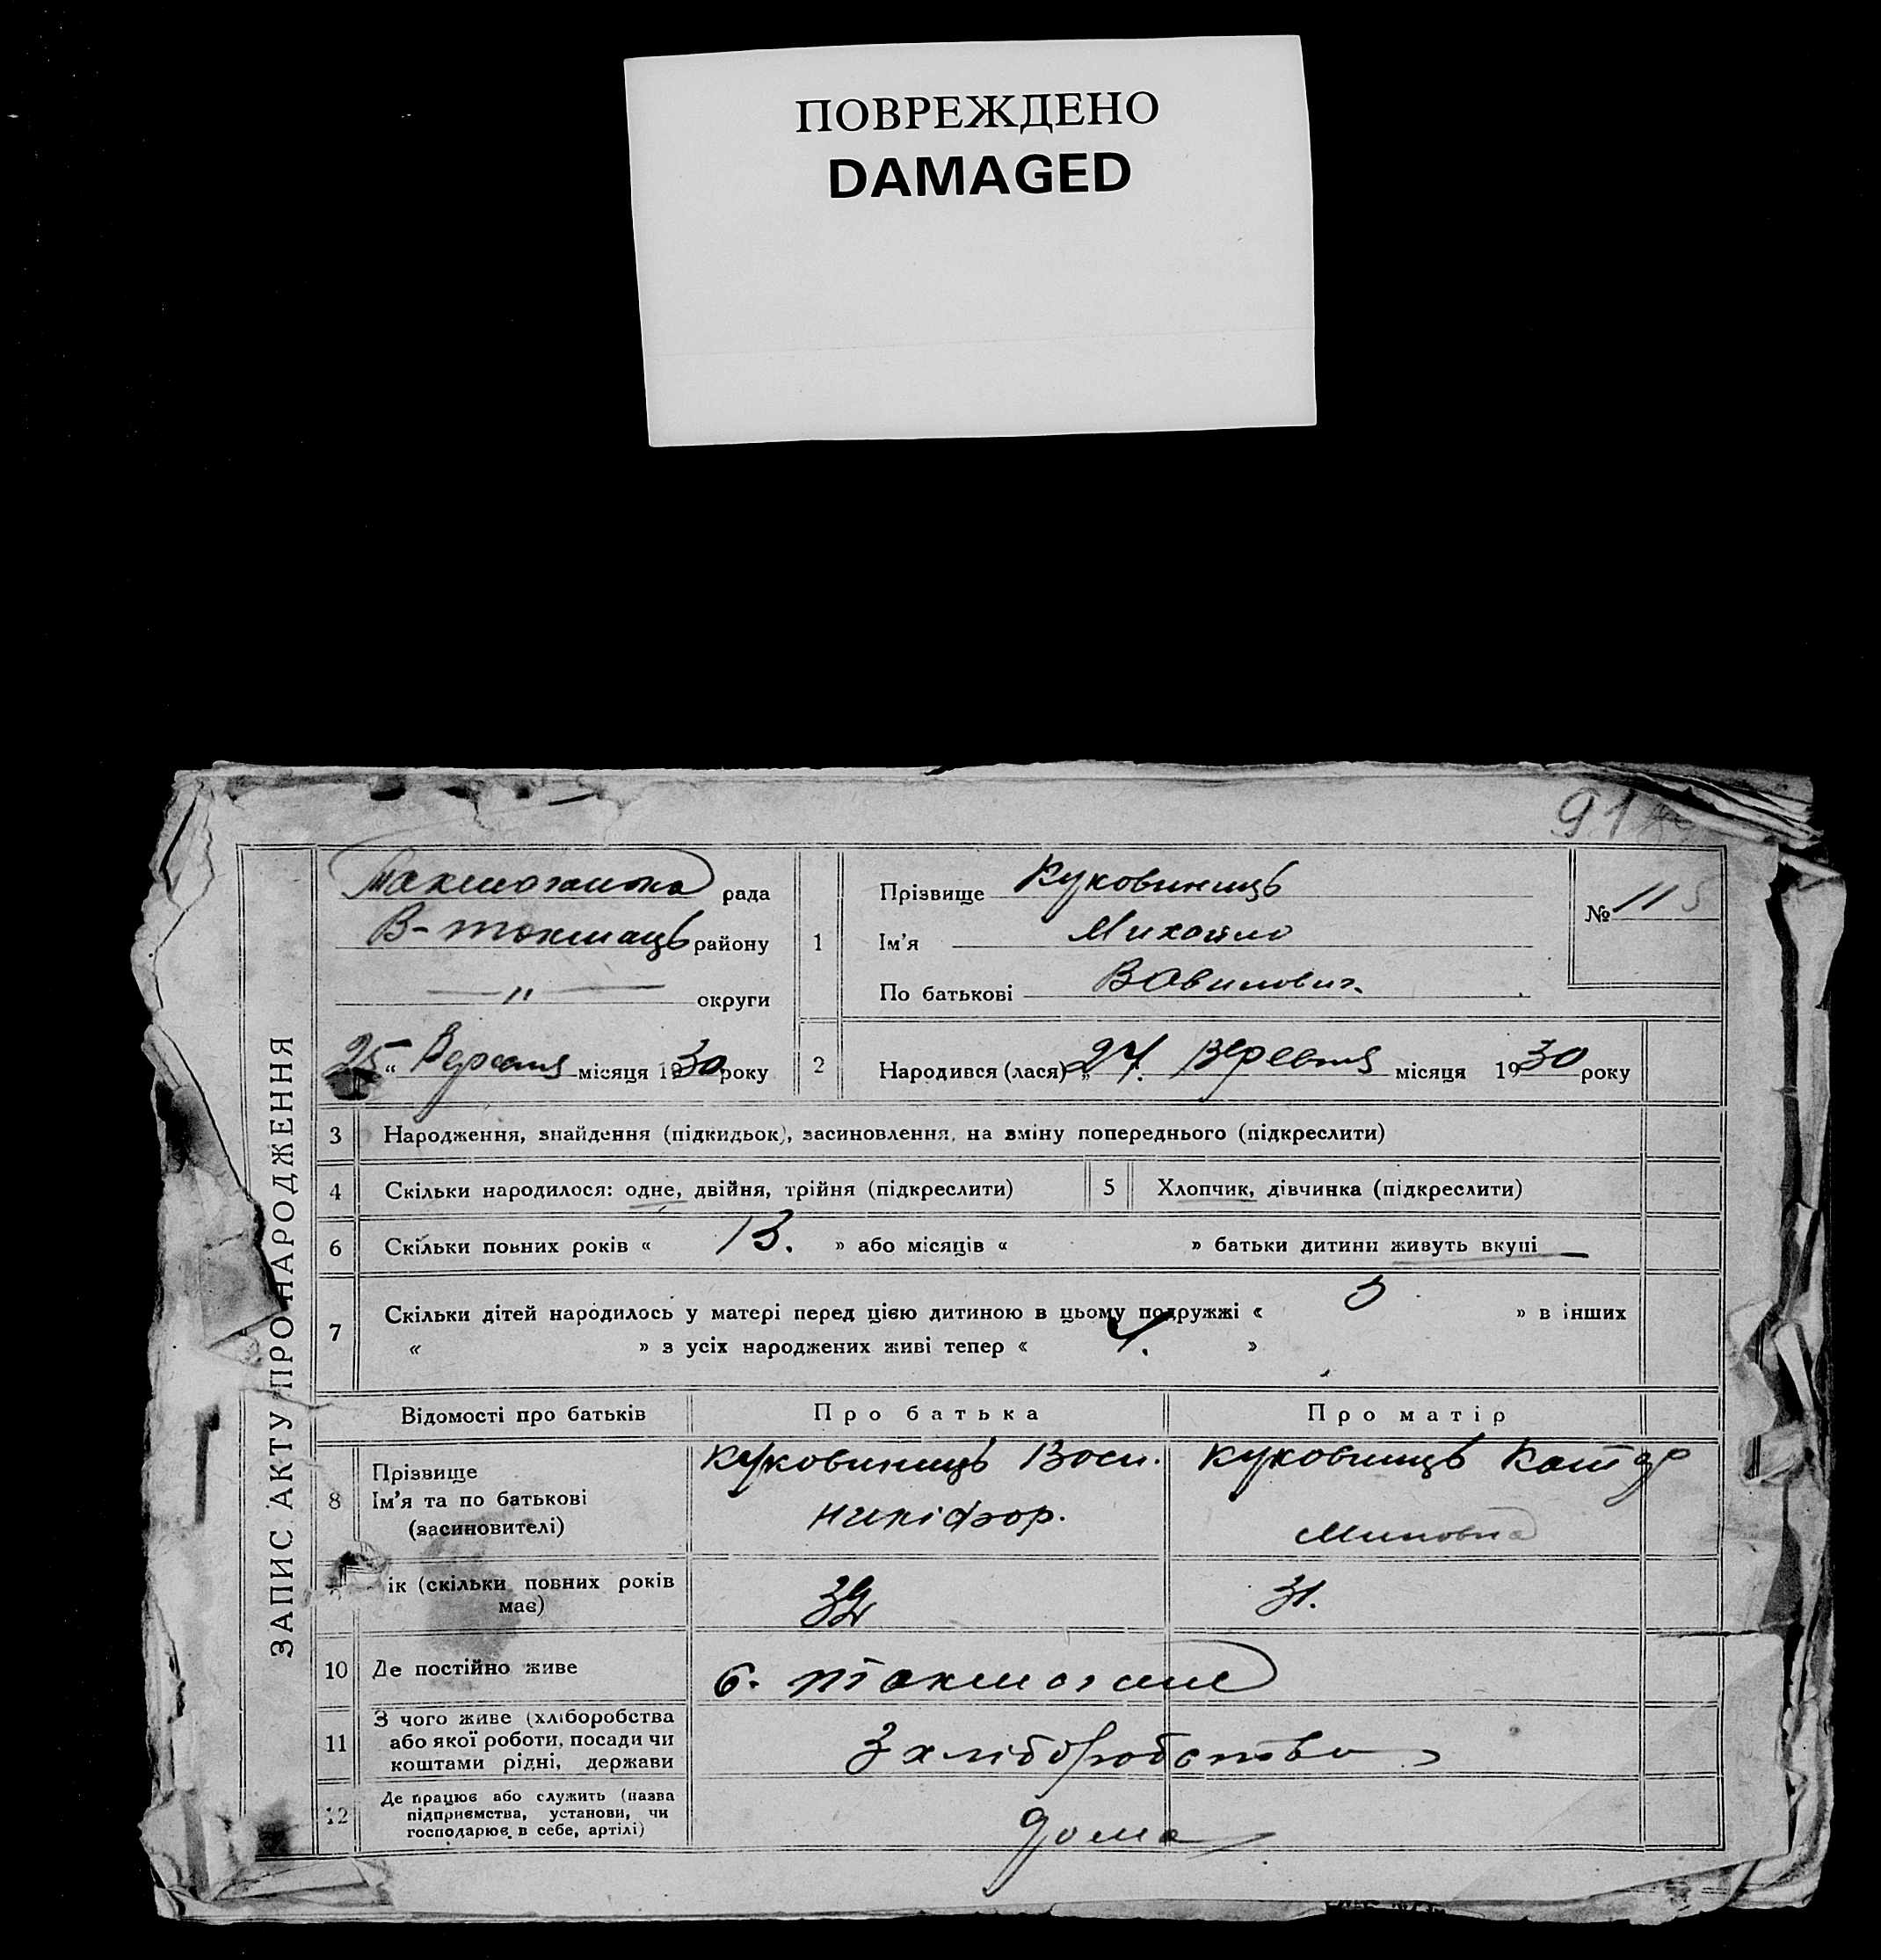 ПОВРЕЖДЕНО
DAMAGED
91
ЗАПИС АКТУ ПРО НАРОДЖЕННЯ
рада
В-токмаць району
— " — округи
25 " Вересня місяця 1930 року
1
Прізвище Куковинець
Ім'я Михайло
По батькові
№ 115
2
Народився (лася) „ 24. Вересня місяця 1930 року
3 Народження, знайдення (підкидьок), засиновлення, на зміну попереднього (підкреслити)
4 Скільки народилося: одне, двійня, трійня (підкреслити)
5 Хлопчик, дівчинка (підкреслити)
6 Скільки повних років « 13. » або місяців « » батьки дитини живуть вкупі
7 Скільки дітей народилось у матері перед цією дитиною в цьому подружжі « » в інших
« » з усіх народжених живі тепер « 4. »
Відомості про батьків
Про батька
Про матір
8 Прізвище
Ім'я та по батькові
(засиновителі)
Нипіфор.
ік (скільки повних років
має)
31.
10 Де постійно живе
с.
11 З чого живе (хліборобства
або якої роботи, посади чи
коштами рідні, держави
З хліборобства
12 Де працює або служить (назва
підприємства, установи, чи
господарює в себе, артілі)
дома